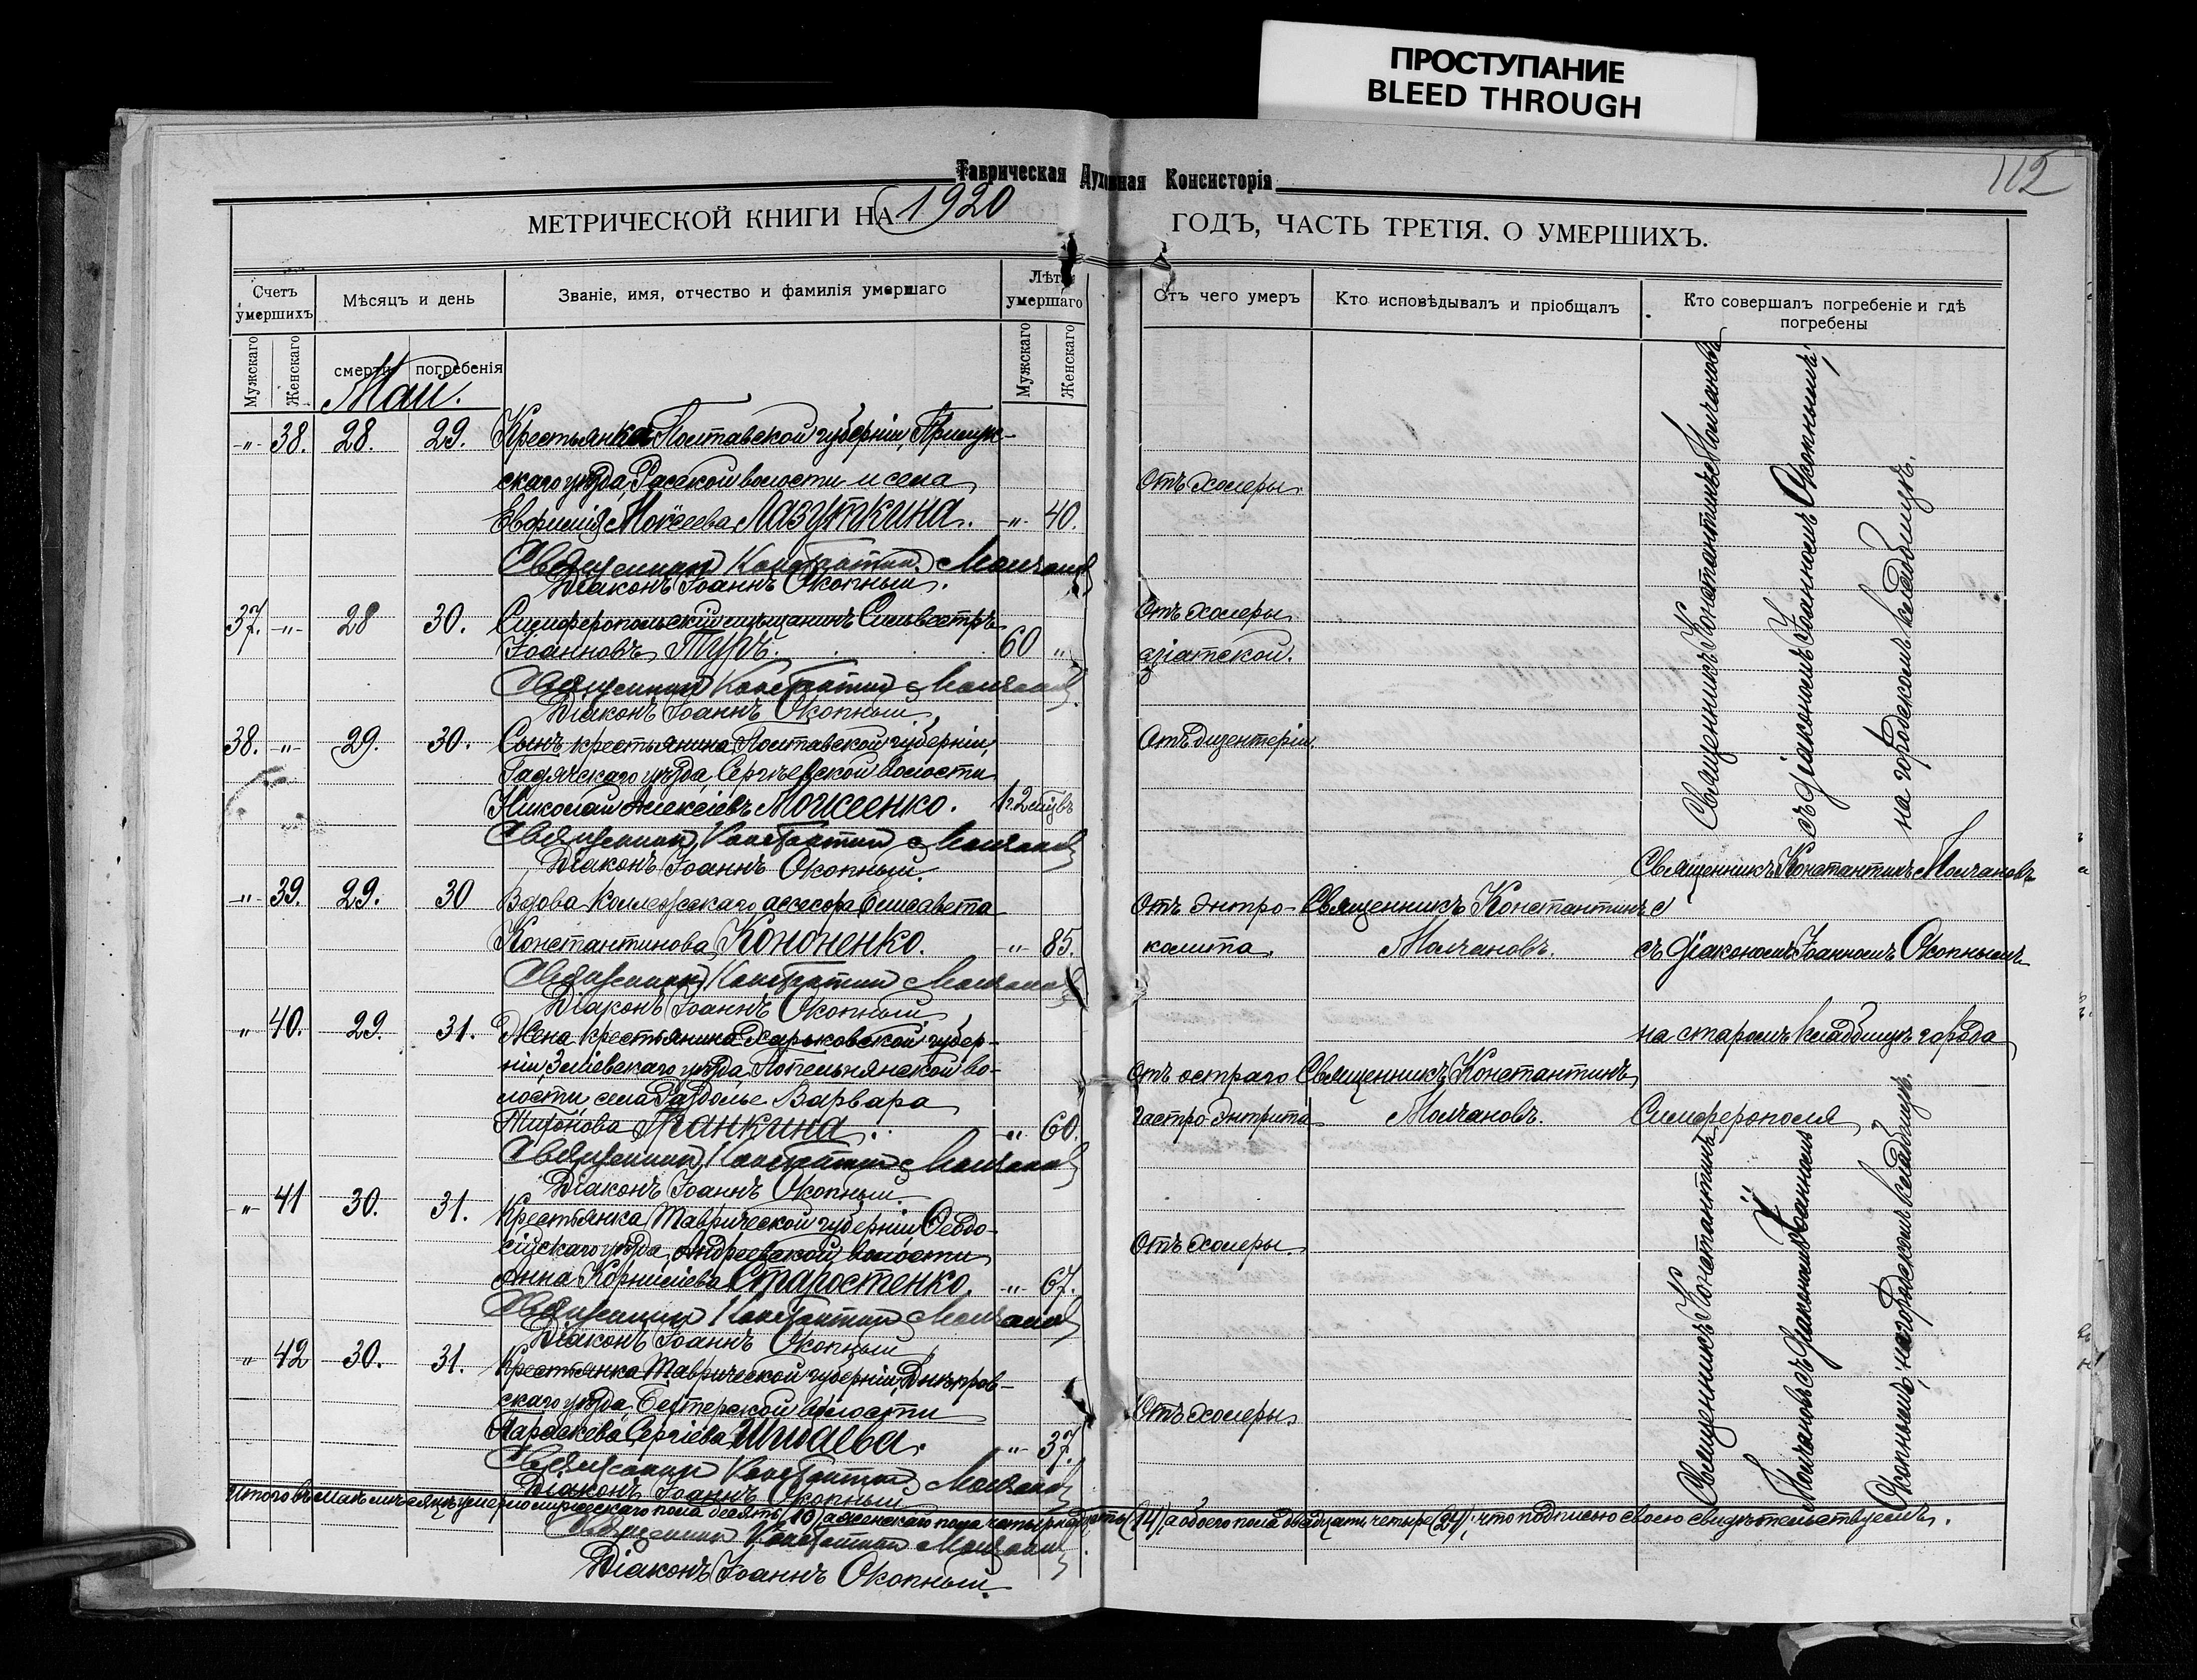 ПРОСТУПАНИЕ
BLEED THROUGH
112
Таврическая Духовная Консисторія
МЕТРИЧЕСКОЙ КНИГИ НА 1920 ГОДЪ, ЧАСТЬ ТРЕТІЯ. О УМЕРШИХЪ.
Счетъ умершихъ
Мужскаго
Женскаго
Мѣсяцъ и день
смерти
погребенія
Званіе, имя, отчество и фамилія умершаго
Лѣта умершаго
Мужскаго
Женскаго
Отъ чего умеръ
Кто исповѣдывалъ и пріобщалъ
Кто совершалъ погребеніе и гдѣ
погребены
Май.
-"- 38. 28. 29. Крестьянка Полтавской губерніи, Прилук-
скаго уѣзда, волости и села Отъ холеры.
Евфимія Моѵсеева Лазуткина. -"- 40.
Священникъ Константинъ Молчановъ
Діаконъ Іоаннъ Окопный.
37. -"- 28 30. Симферопольскій мѣщанинъ Сильвестръ Отъ холеры
Іоанновъ Туръ. 60 " азіатской.
Священникъ Константинъ Молчановъ
Діаконъ Іоаннъ Окопный
Священникъ Константинъ Молчановъ
съ діакономъ Іоанномъ Окопнымъ
на городскомъ кладбищѣ.
38. -"- 29. 30. Сынъ крестьянина Полтавской губерніи, Отъ дизентеріи.
Гадячскаго уѣзда, Сергіевской волости
Николай Алексіевъ Моисеенко. 1г. 2 мѣс.
Священникъ Константинъ Молчановъ
Діаконъ Іоаннъ Окопный.
-"- 39. 29. 30 Вдова коллежскаго ассесора Елисавета Отъ энтро- Священникъ Константинъ Священникъ Константинъ Молчановъ
Константинова Кононенко. -"- 85. колита Молчановъ. съ діакономъ Іоанномъ Окопнымъ
Священникъ Константинъ Молчановъ
Діаконъ Іоаннъ Окопный
" 40. 29. 31. Жена крестьянина Харьковской губер- на старомъ кладбищѣ города
ніи, Зміевскаго уѣзда, во- Отъ остраго Священникъ Константинъ
лости, села Раздолье Варвара гастро-энтрита Молчановъ. Симферополя
Тихонова -"- 60.
Священникъ Константинъ Молчановъ
Діаконъ Іоаннъ Окопный.
-"- 41 30. 31. Крестьянка Таврической губерніи, Ѳеодо-
сійскаго уѣзда, Андреевской волости Отъ холеры.
Анна Корниліева Старостенко. -"- 67.
Священникъ Константинъ Молчановъ
Діаконъ Іоаннъ Окопный
" 42 30. 31. Крестьянка Таврической губерніи, Днѣпров-
скаго уѣзда, волости Отъ холеры.
Параскева Сергіева -"- 37.
Священникъ Константинъ Молчановъ
Діаконъ Іоаннъ Окопный
Священникъ Константинъ
Молчановъ съ діакономъ Іоанномъ
Окопнымъ, на городскомъ кладбищѣ.
Итого въ Маѣ мѣсяцѣ умерло мужескаго пола десять (10) а женскаго пола четырнадцать (14), а обоего пола двадцать четыре (24); что подписью своею свидѣтельствуемъ.
Священникъ Константинъ Молчановъ
Діаконъ Іоаннъ Окопный.